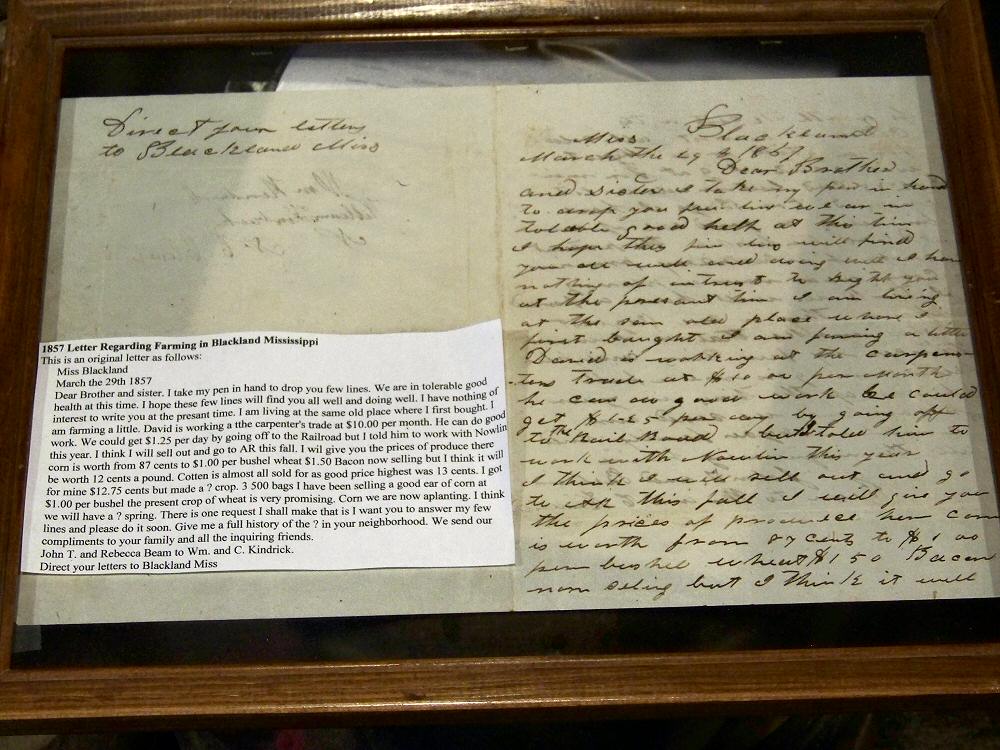 Direct your letters
to Blackland Miss
1857 Letter Regarding Farming in Blackland Mississippi
This is an original letter as follows:
Miss Blackland
March the 29th 1857
Dear Brother and sister. I take my pen in hand to drop you few lines. We are in tolerable good
health at this time. I hope these few lines will find you all well and doing well. I have nothing of
interest to write you at the presant time. I am living at the same old place where I first bought. I
am farming a little. David is working a tthe carpenter's trade at $10.00 per month. He can do good
work. We could get $1.25 per day by going off to the Railroad but I told him to work with Nowlin
this year. I think I will sell out and go to AR this fall. I wil give you the prices of produce there
corn is worth from 87 cents to $1.00 per bushel wheat $1.50 Bacon now selling but I think it will
be worth 12 cents a pound. Cotten is almost all sold for as good price highest was 13 cents. I got
for mine $12.75 cents but made a ? crop. 3 500 bags I have been selling a good ear of corn at
$1.00 per bushel the present crop of wheat is very promising. Corn we are now aplanting. I think
we will have a ? spring. There is one request I shall make that is I want you to answer my few
lines and please do it soon. Give me a full history of the ? in your neighborhood. We send our
compliments to your family and all the inquiring friends.
John T. and Rebecca Beam to Wm. and C. Kindrick.
Direct your letters to Blackland Miss
Miss Blackland
March the 29th 1857
Dear Brother
and Sister I take my pen in hand
to drop you few lins we ar in
tolable good helth at this time
I hope this few lins will find
you all well and doing well I have
nothing of intrust to right you
at the presant tim I am living
at the sam old place where I
first bought I am farming a little
David is working at the carpen-
ters trade at $10 00 per month
he can do good work he could
get $1.25 per day by going off
to the Rail Road but I told him to
work with Nowlin this year
I think I will sell out and go
to ARK this fall I will give you
the prices of produce her corn
is worth from 87 cents to $1 00
per bushel wheat $1 50 Bacon
now seling but I think it will